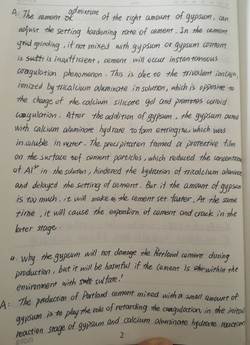 A: The cement of admixture of the right amount of gypsum, can
adjust the setting hardening rate of cement. In the cement
grinding, if not mixed with gypsum or gypsum content
is insufficient, cement will occur instantaneous
coagulation phenomenon. This is due to the trivalent ion
ionized by tricalcium aluminate in solution, which is opposite to
the charge of the calcium silicate gel and promotes colloid
coagulation. After the addition of gypsum, the gypsum
with calcium aluminate hydrate to form ettringite, which was
insoluble in water. The precipitation formed a protective film
on the surface of cement particles, which reduced the
of Al³⁺ in the solution, hindered the hydration of tricalcium
and delayed the setting of cement. But if the amount of gypsum
is too much, it will make the cement set faster. At the same
time, it will cause the expansion of cement and crack in the
later stage.
Q: Why the gypsum will not damage the Portland cement during
production, but it will be harmful if the cement is within the
environment with sulfate?
A: The production of Portland cement mixed with a small amount of
gypsum is to play the role of retarding the coagulation, in the initial
reaction stage of gypsum and calcium aluminate hydrate
2